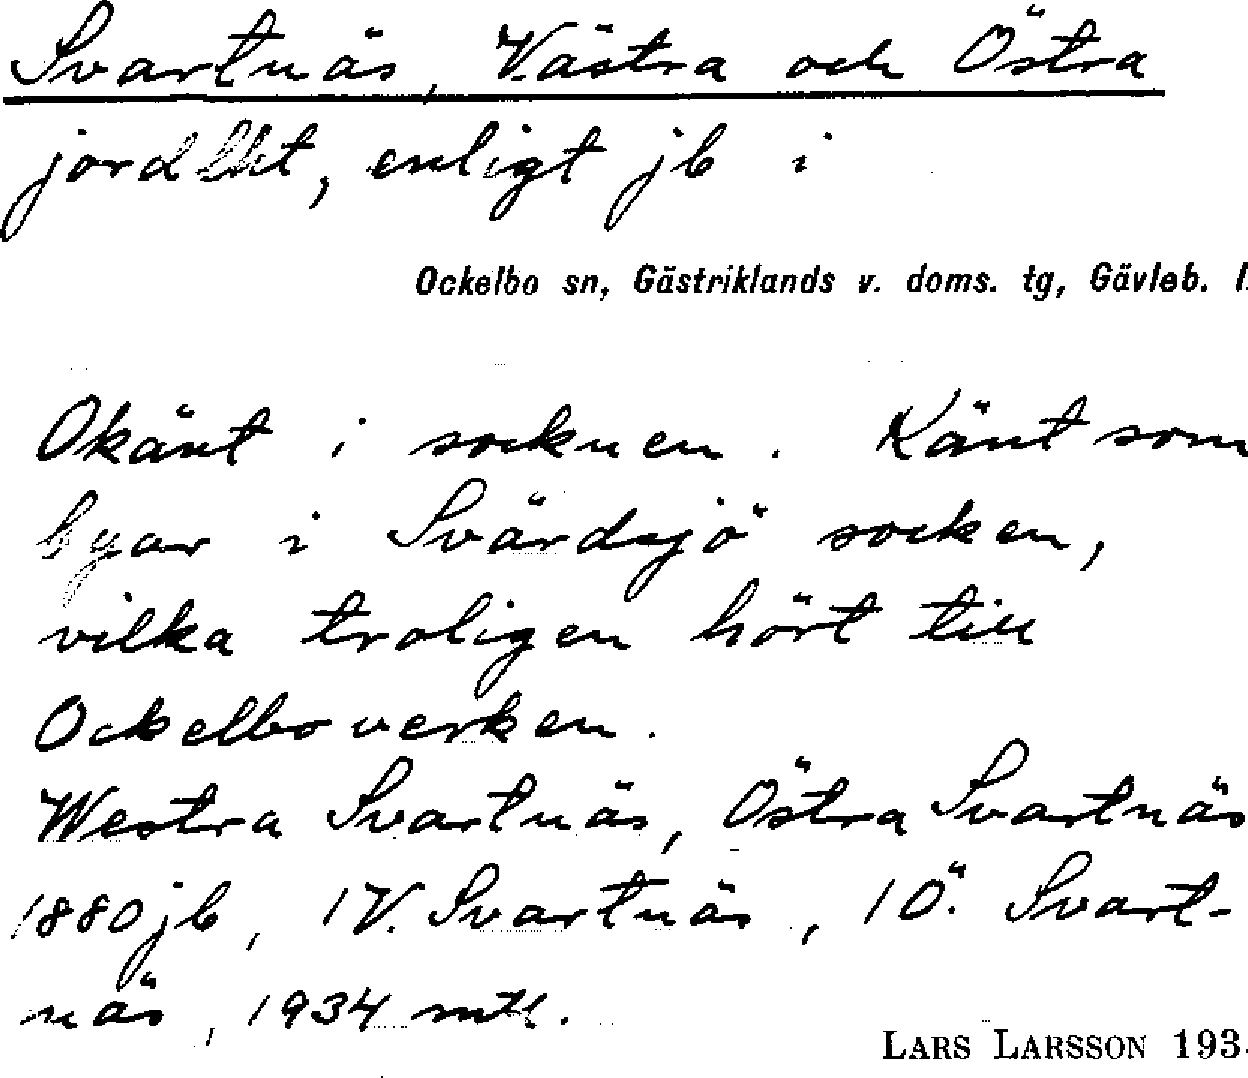 Svartnäs, Västra och Östra
jordlht, enligt jb i
Ockelbo sn, Gästriklands v. doms. tg, Gävleb. l.
Okänt i socknen. Känt som
byar i Svärdsjö socken,
vilka troligen hört till
Ockelboverken.
Westra Svartnäs, Östra Svartnäs
1880 jb, 1 V. Svartnäs, 1 Ö. Svart-
näs, 1934 mtl.
LARS LARSSON 193